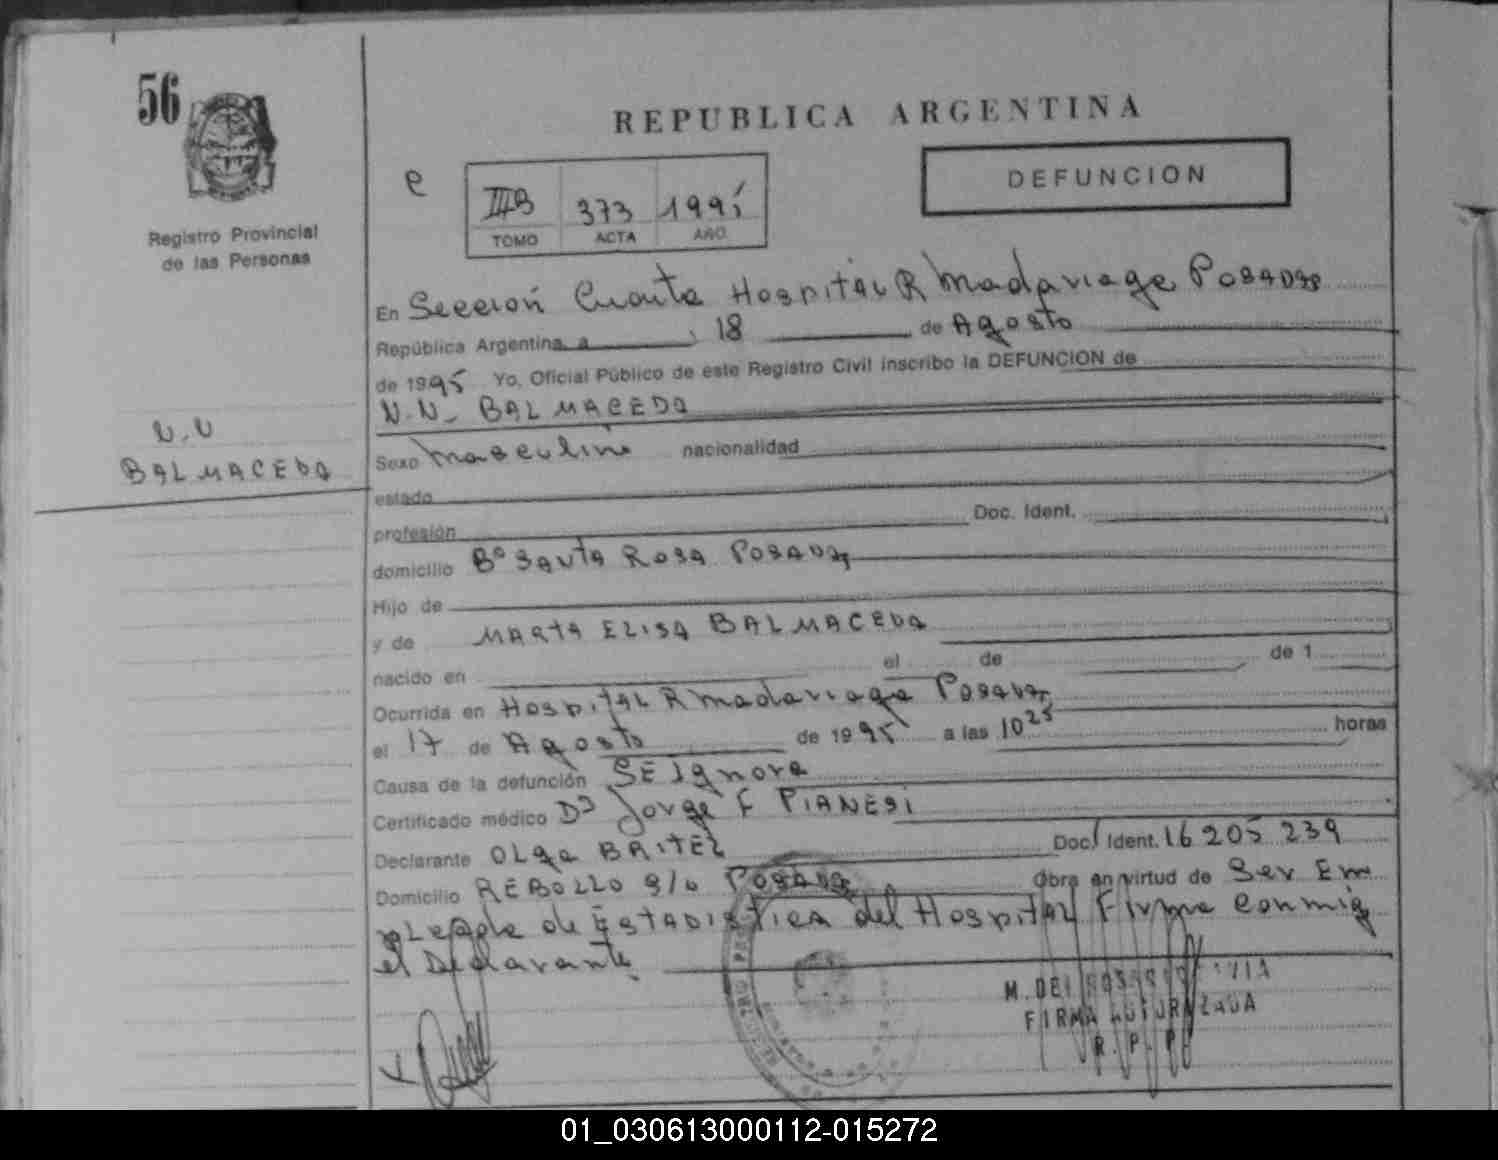 56
REPUBLICA ARGENTINA
e
IIIB 373 1995
TOMO ACTA AÑO
DEFUNCION
Registro Provincial
de las Personas
En Sección Cuarta Hospital R Madariaga Posadas
República Argentina a 18 de Agosto
de 1995 Yo, Oficial Público de este Registro Civil inscribo la DEFUNCION de
N.N- BALMACEDA
N.N
BALMACEDA
Sexo Masculino nacionalidad
estado
profesión Doc. Ident.
domicilio Bº SANTA ROSA POSADAS
Hijo de
y de MARTA ELISA BALMACEDA
nacido en el de de 1
Ocurrida en Hospital R Madariaga Posadas
el 17 de Agosto de 1995 a las 10 25 horas
Causa de la defunción SE Ignora
Certificado médico Dr Jorge F PIANESI
Declarante OLga BRITEZ Doc. Ident. 16 205 239
Domicilio REBOLLO S/N POSADAS Obra en virtud de Ser Em
pleada de ESTADISTICA del Hospital Firma conmigo
el Declarante
M. DEL ROSARIO
FIRMA AUTORIZADA
R. P. P
01_030613000112-015272